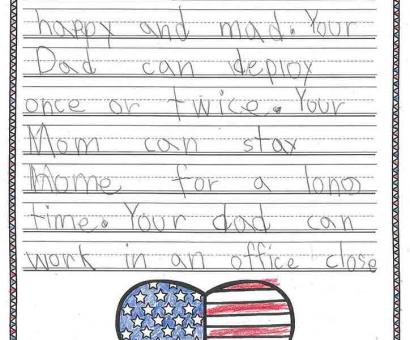 happy and mad. Your
Dad can deploy
once or twice. Your
Mom can stay
Home for a long
time. Your dad can
work in an office close